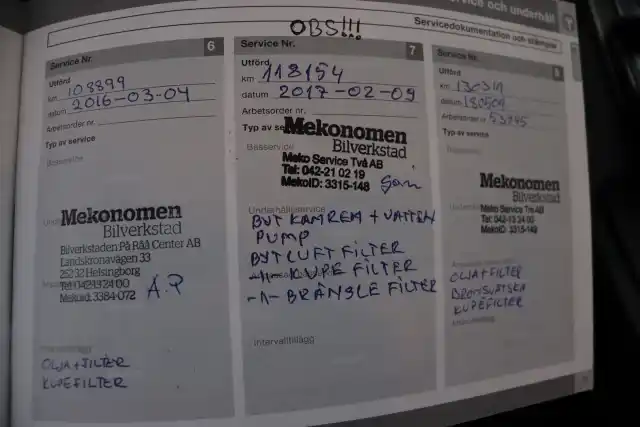 Service och underhåll
Servicedokumentation och stämplar
OBS!!!
Service Nr. 6
Utförd
km 108899
datum 2016-03-04
Arbetsorder nr.
Typ av service
Basservice
Mekonomen
Bilverkstad
Bilverkstaden På Råå Center AB
Landskronavägen 33
252 32 Helsingborg
Tel: 042-13 24 00
MekoID: 3384-072
A.P
Intervalltillägg
OLJA + FILTER
KUPEFILTER
Service Nr. 7
Utförd
km 118154
datum 2017-02-09
Arbetsorder nr.
Typ av se
Mekonomen
Bilverkstad
Basservice
Meko Service Två AB
Tel: 042-21 02 19
MekoID: 3315-148
Underhållsservice
BYT KAMREM + VATTEN
PUMP
BYT LUFT FILTER
-11- KUPE FILTER
-1- BRÄNSLE FILTER
Intervalltillägg
Service Nr. 8
Utförd
km
datum 180509
Arbetsorder nr 53745
Typ av service
Basservice
Mekonomen
Bilverkstad
Meko Service Tre AB
Tel: 042-13 24 00
MekoID: 3315-149
OLJA + FILTER
BROMSVÄTSKA
KUPEFILTER
Intervalltillägg